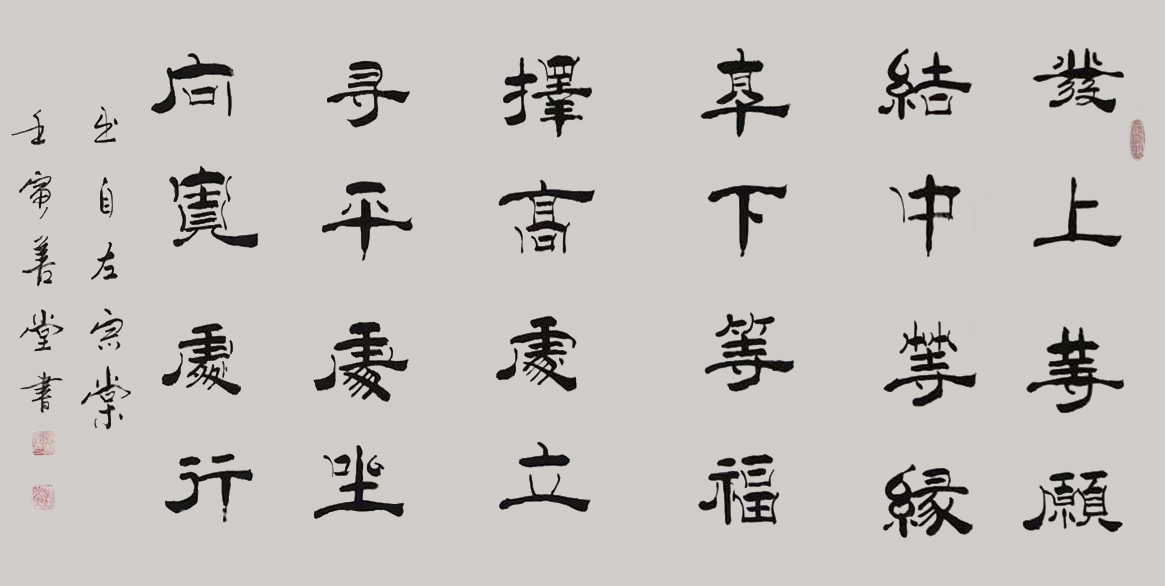 發上等願
結中等緣
享下等福
擇高處立
尋平處坐
向寬處行
出自左宗棠
壬寅善堂書